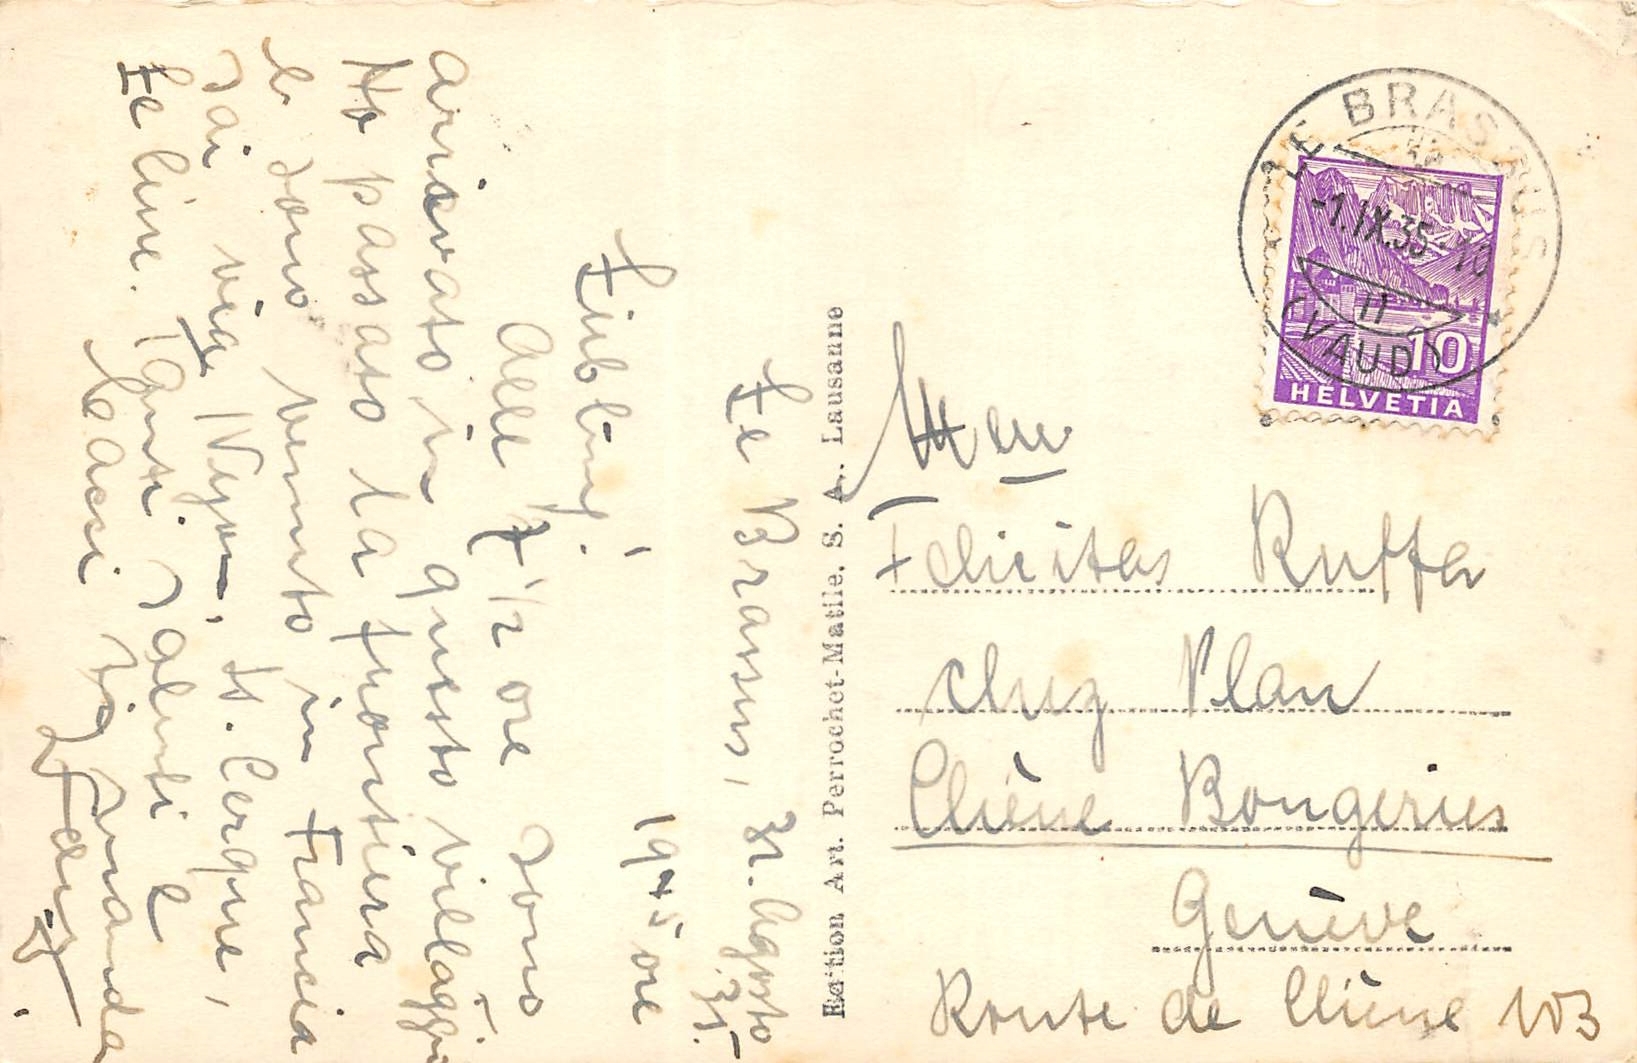 Le Brassus, 31. Agosto 35.
19 45 ore
Liebling!
Alle 7 1/2 ore sono
arrivato in questo villaggio.
Ho passato la frontiera
e sono venuto in Francia
sai via Nyon, St. Cergue,
Le Line. Tanti saluti e
baci ti manda
Edition Art. Perrochet-Matile, S. A., Lausanne
LE BRASSUS
-1.IX.35-10
(VAUD)
10
HELVETIA
Felicitas Ruffa
chez Plan
Chêne Bougeries
Genève
Route de Chêne 103